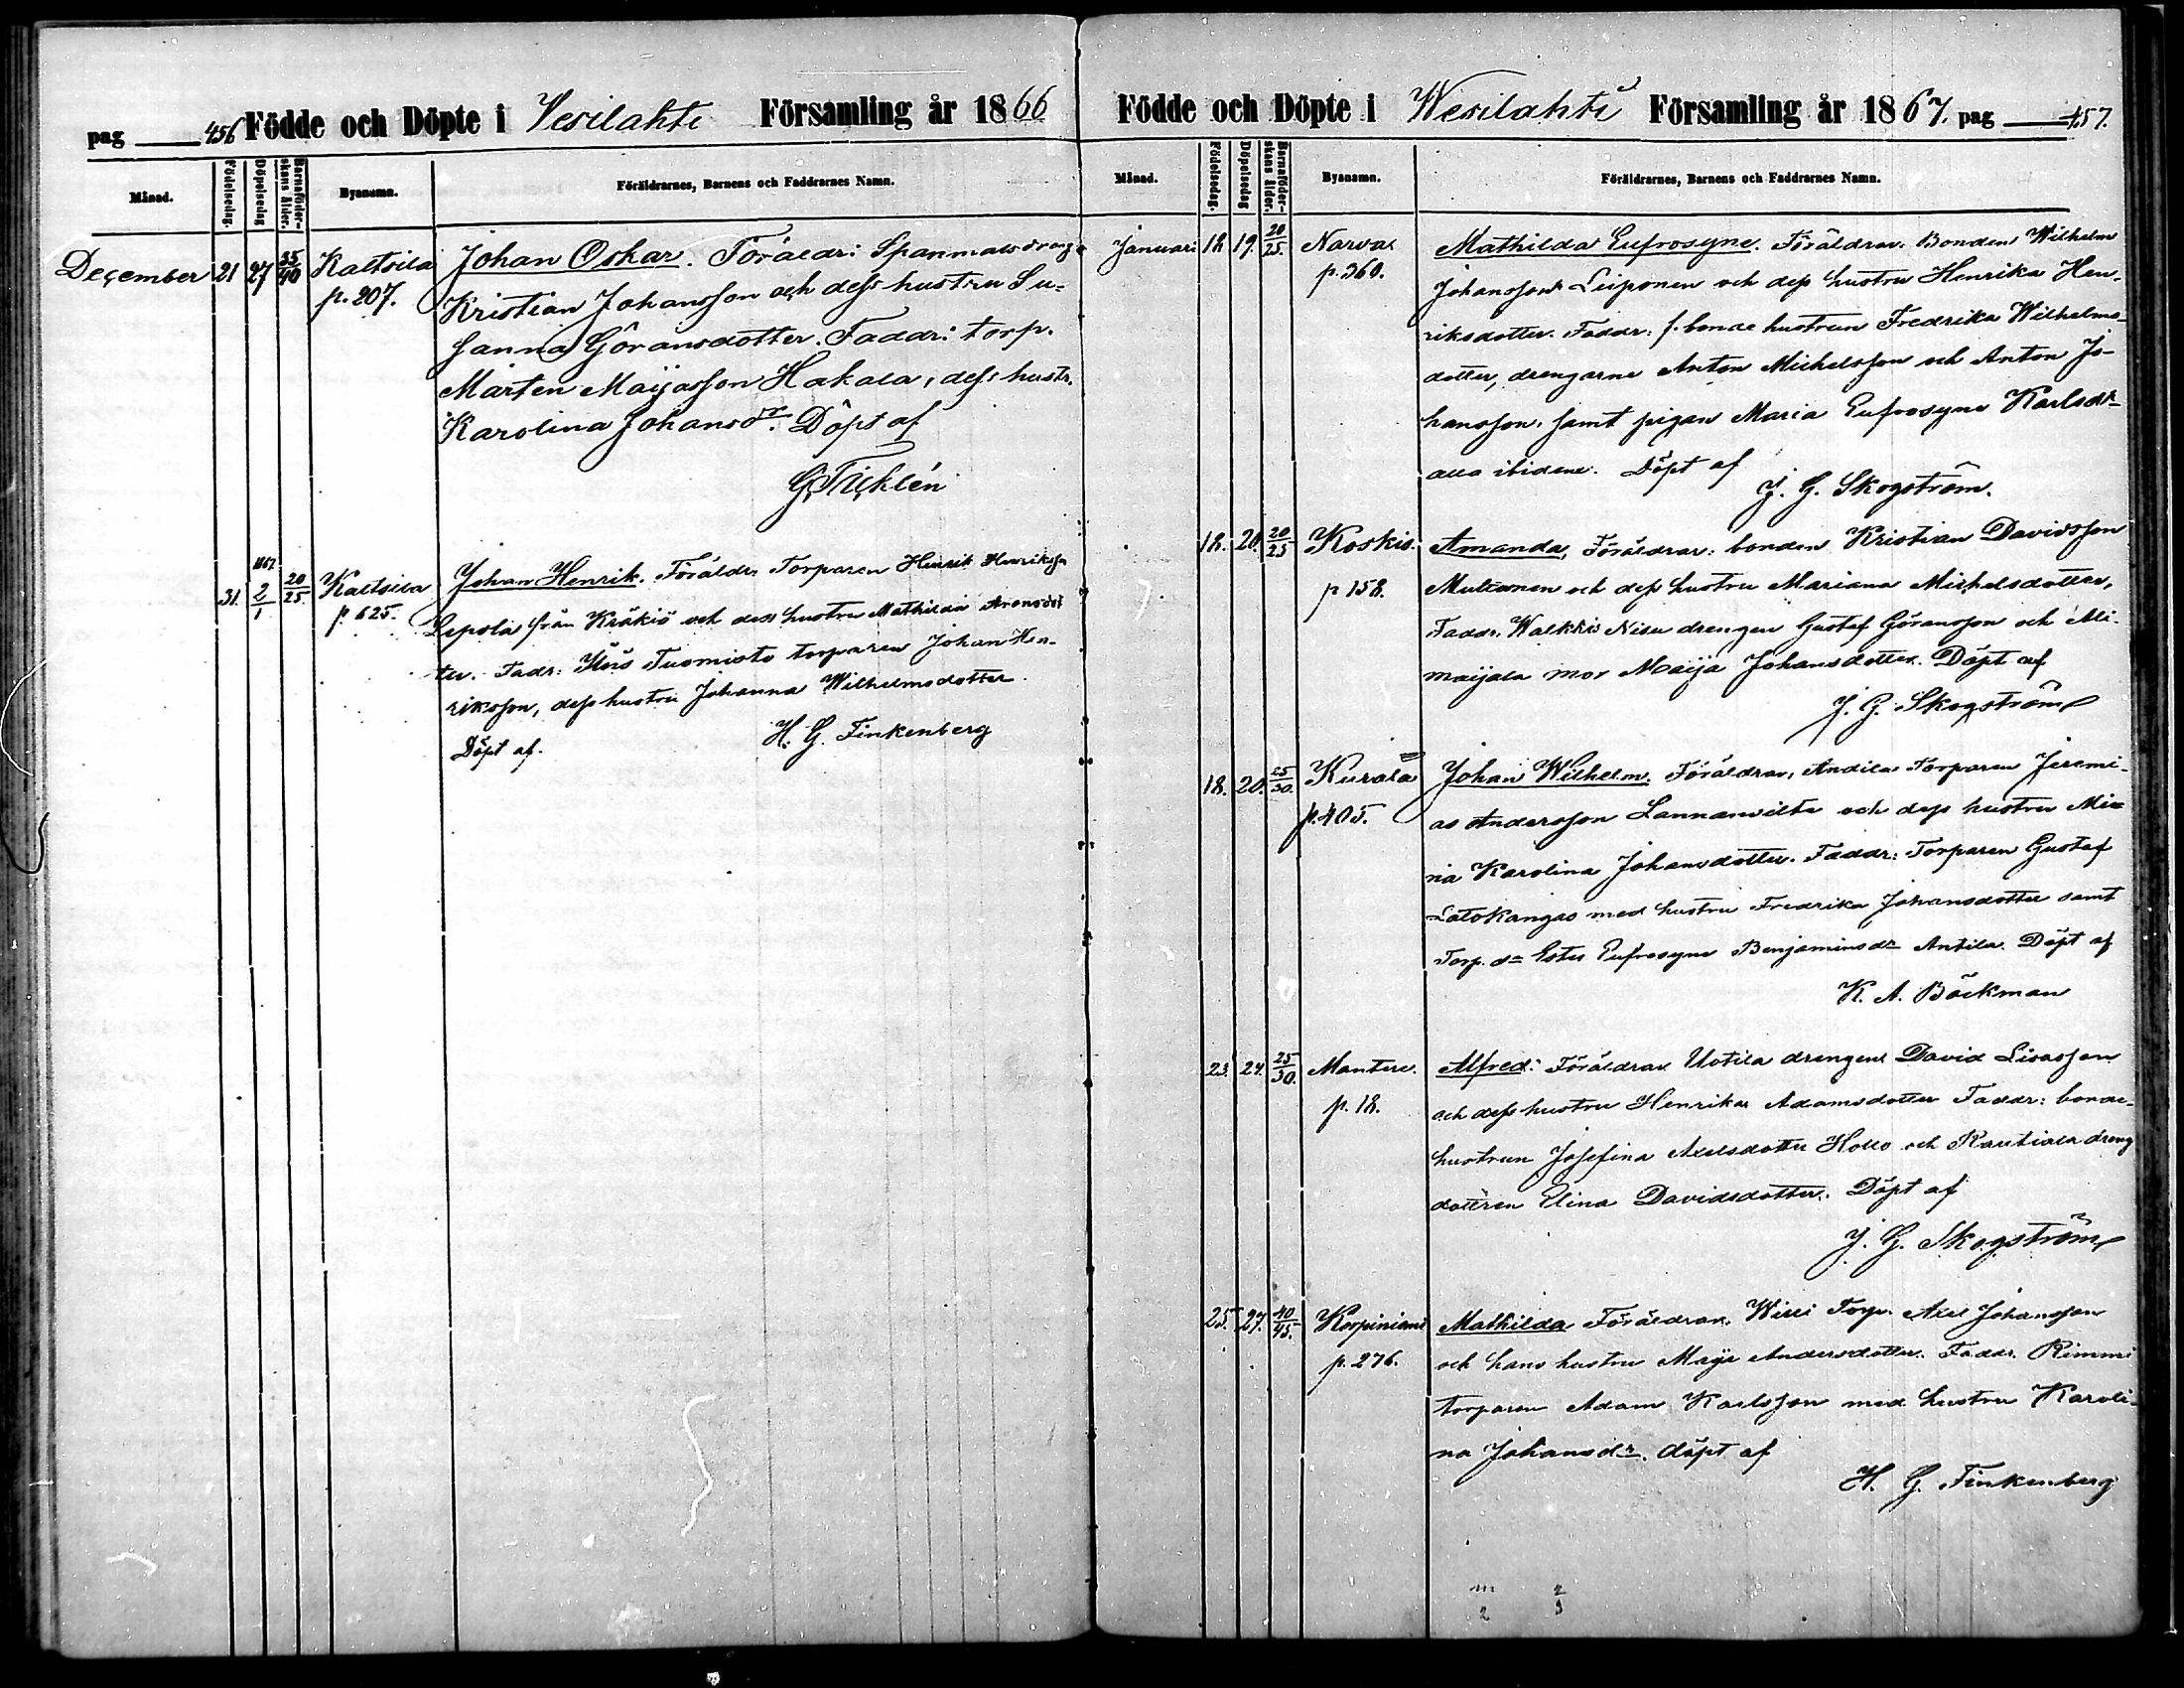 pag 456 Födde och Döpte i Vesilahti Församling år 1866
Månad. Födelsedag. Döpelsedag Barnaföderskans ålder. Byanamn. Föräldrarnes, Barnens och Faddrarnes Namn.
December 21 27 35/40 Kaltsila Johan Oskar. Föräldr: Spanmalsdreng
p. 207. Kristian Johansson och dess hustru Su-
sanna Göransdotter. Faddr: torp.
Mårten Maijasson Hakala, dess hustr.
Karolina Johansdr. Döpt af
G. Ticklén
1867
31. 2/1 20/25. Kaltsila Johan Henrik. Föräldr. Torparen Henrik Henriksson
p 625. Lepola från Kräkiö och dess hustru Mathilda Aronsdot
ter. Fadr: Tuomisto torparen Johan Hen-
riksson, dess hustru Johanna Wilhelmsdotter.
Döpt af. H. G. Finkenberg
Födde och Döpte i Wesilahti Församling år 1867. pag 457.
Månad. Födelsedag. Döpelsedag Barnaföderskans ålder. Byanamn. Föräldrarnes, Barnens och Faddrarnes Namn.
Januari 18 19. 20/25. Narva Mathilda Eufrosyne. Föräldrar. Bonden Wilhelm
p. 360. Johansson Leiponen och dess hustru Henrika Hen-
riksdotter. Faddr: f. bonde hustrun Fredrika Wilhelms-
dotter, drengarne Anton Michelsson och Anton Jo-
hansson, samt pigan Maria Eufrosyne Karlsdr
alla ibidem. Döpt af
J. G. Skogström.
18. 20. 20/25 Koskis. Amanda, Föräldrar: bonden Kristian Davidsson
p 158. Multanen och dess hustru Mariana Michelsdotter,
Faddr. Walkkis Nisu drengen Gustaf Göransson och Mi-
maijala mor Maija Johansdotter. Döpt af
J. G. Skogström
18. 20. 25/30. Kurala Johan Wilhelm. Föräldrar, Andila Torparen Jeremi-
p. 405. as Andersson Lannanvilta och dess hustru Mi-
na Karolina Johansdotter. Faddr: Torparen Gustaf
Latokangas med hustru Fredrika Johansdotter samt
Torp. dr Ester Eufrosyne Benjaminsdr Antila. Döpt af
K. A. Bäckman
23. 24. 25/30. Mantere. Alfred: Föräldrar Uotila drengen David Lisasson
p. 18. och dess hustru Henrika Adamsdotter Faddr: bonde-
hustrun Josefina Axelsdotter Hollo och Rautiala dreng
dottren Elina Davidsdotter. Döpt af
J. G. Skogström
25. 27. 40/45. Korpiniemi Mathilda Föräldrar, Willi Torp. Axel Johansson
p. 276. och hans hustru Maija Andersdotter. Faddr. Rimmi
torparen Adam Karlsson med hustru Karoli-
na Johansdr. döpt af
H. G. Finkenberg
m 2
2 3